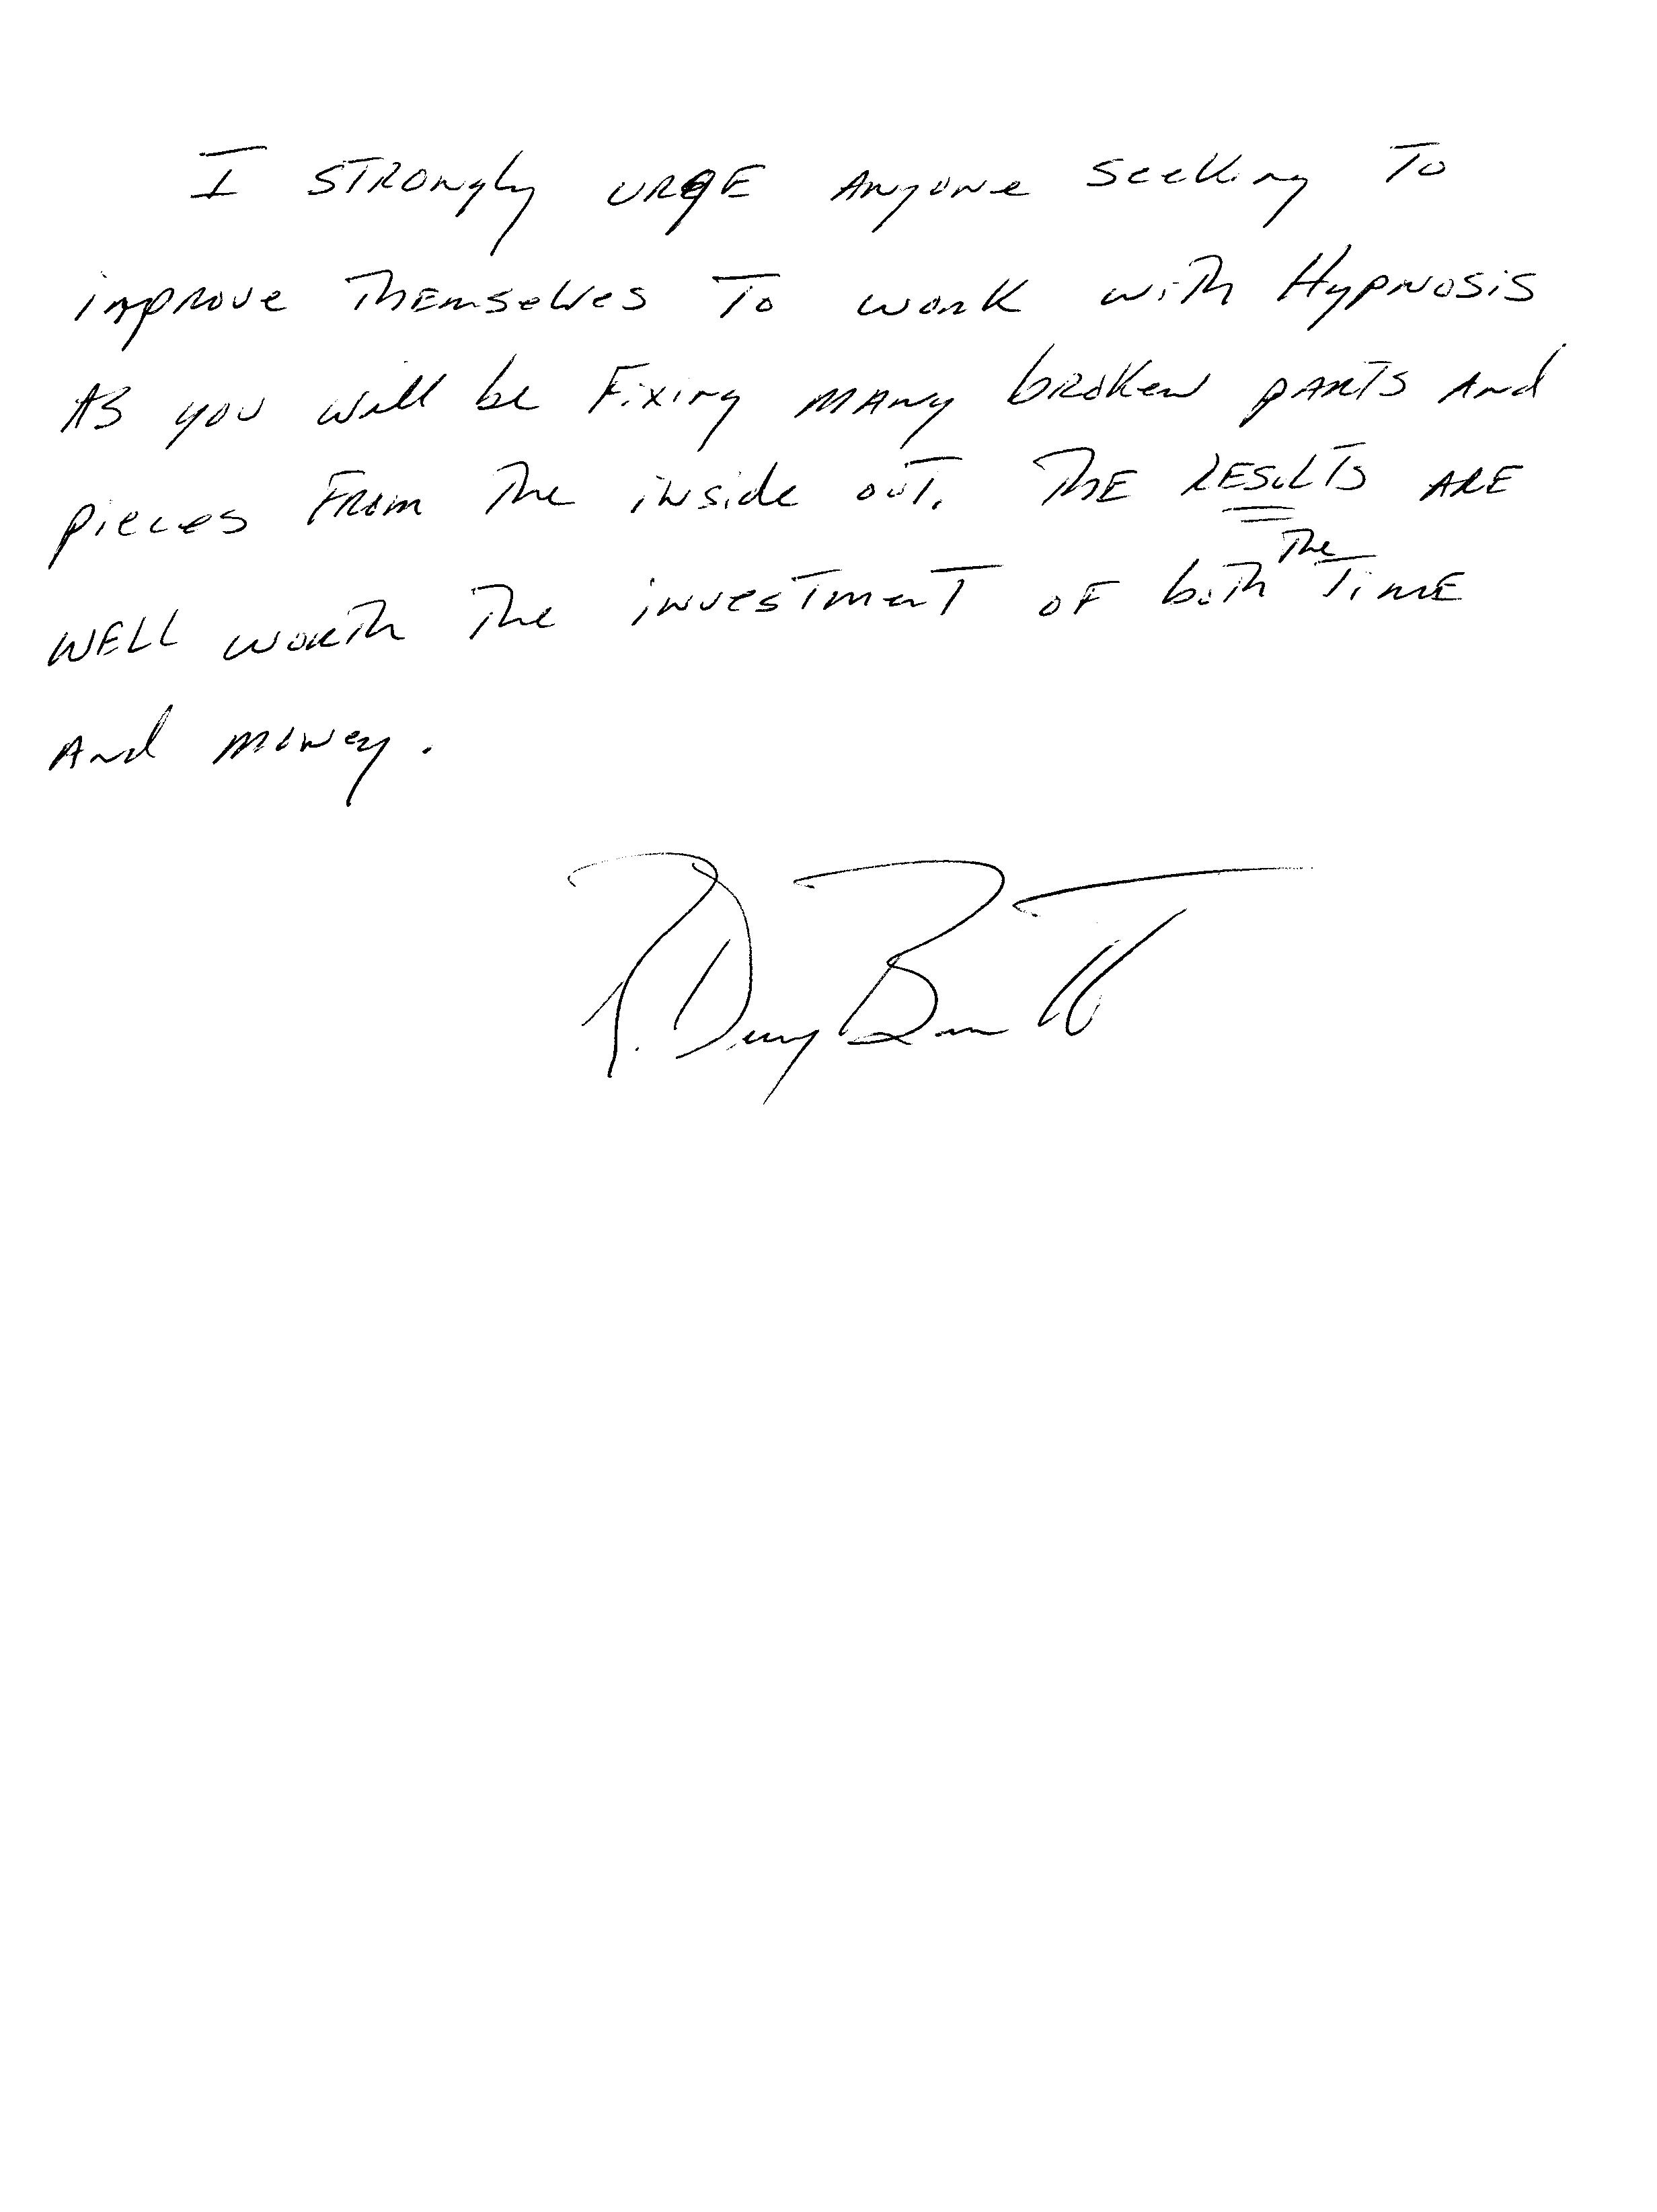 I STRONgly URgE ANyONe Seeking To
improve THEmselves To work with HypNosis
AS you will be Fixing MANy bROKeN pARTS And
pieces FRom The iNside ouT. THE RESULTS ARE
WELL worth The iNvesTmenT oF both The TimE
And moNey.